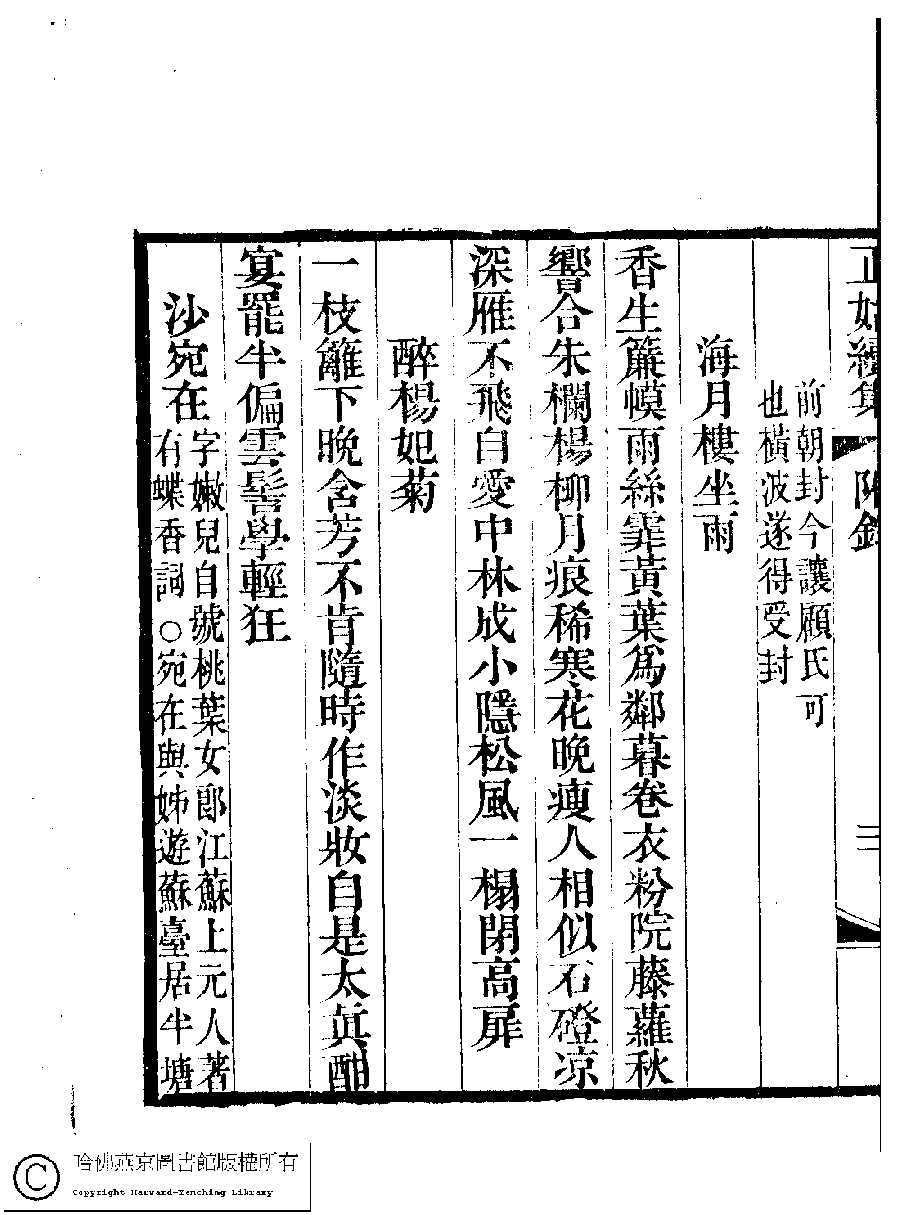 正始續集 附錄 二
前朝封今讓顧氏可
也橫波遂得受封
海月樓坐雨
香生簾幙雨絲霏黃葉爲鄰暮卷衣粉院藤蘿秋
響合朱欄楊柳月痕稀寒花晚瘦人相似石磴凉
深雁不飛自愛中林成小隱松風一榻閉高扉
醉楊妃菊
一枝籬下晚含芳不肯隨時作淡妝自是太眞酣
宴罷半偏雲髻學輕狂
沙宛在字嫩兒自號桃葉女郎江蘇上元人著
有蝶香詞○宛在與姊遊蘇臺居半塘
哈佛燕京圖書館版權所有
Copyright Harvard-Yenching Library